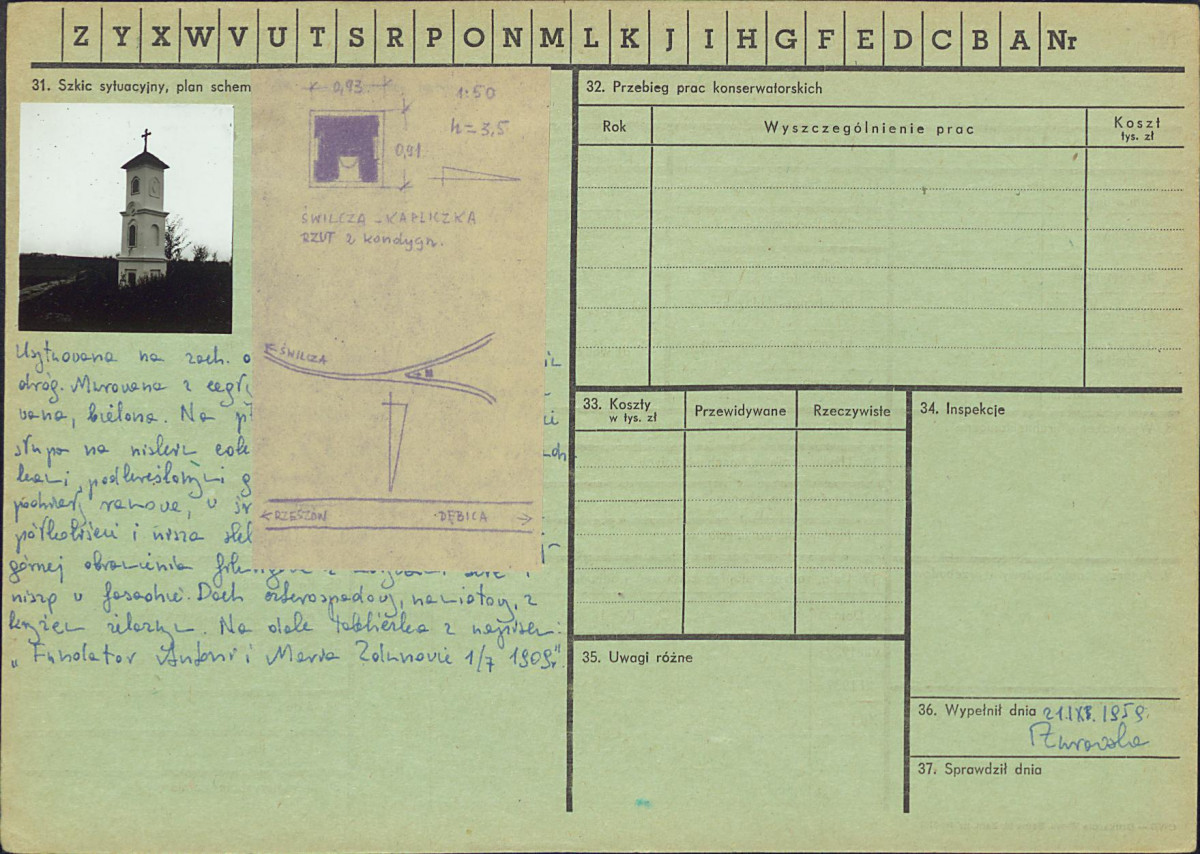 Z Y X W V U T S R P O N M L K J I H G F E D C B A Nr
31. Szkic sytuacyjny, plan schem
0,93
1:50
h = 3,5
0,91
ŚWILCZA - KAPLICZKA
RZUT 2 kondygn.
← ŚWILCZA
← RZESZÓW
DĘBICA →
Usytuowana na zach. o
dróg. Murowana z cegły
wana, bielona. Na
słupa na niskim coko
kami, podkreślonymi g
ramowe, w
i nisza
górnej obramienia
niszą w fasadzie. Dach czterospadowy, namiotowy, z
krzyżem żelaznym. Na dole tabliczka z napisem:
„Fundator Antoni i Maria Zdunowie 1/7 1909r."
32. Przebieg prac konserwatorskich
Rok
Wyszczególnienie prac
Koszt
tys. zł
33. Koszty
w tys. zł
Przewidywane
Rzeczywiste
34. Inspekcje
35. Uwagi różne
36. Wypełnił dnia
1959.
37. Sprawdził dnia